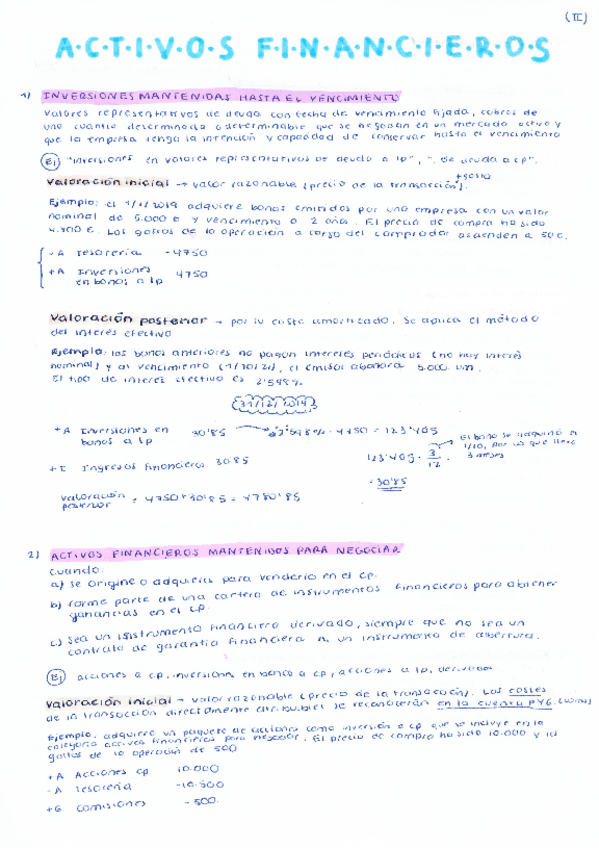 (II)
A·C·T·I·V·O·S F·I·N·A·N·C·I·E·R·O·S
1) INVERSIONES MANTENIDAS HASTA EL VENCIMIENTO
Valores representativos de deuda con fecha de vencimiento fijada, cobros de
una cuantía determinada o determinable que se negocian en un mercado activo y
que la empresa tenga la intención y capacidad de conservar hasta el vencimiento
Ej "Inversiones en valores representativos de deuda a lp", ".. de deuda a cp".
Valoración inicial → valor razonable (precio de la transacción). + gastos
Ejemplo: el adquiere bonos emitidos por una empresa con un valor
nominal de 5.000 € y vencimiento a 2 años. El precio de compra ha sido
4.700 €. Los gastos de la operación a cargo del comprador ascienden a 50 €.
- A Tesorería - 4750
+ A Inversiones 4750
en bonos a lp
Valoración posterior → por su coste amortizado. Se aplica el método
del interés efectivo
Ejemplo: los bonos anteriores no pagan intereses periódicos (no hay interés
nominal) y al vencimiento (1/10/21), el emisor abonará 5.000 um.
El tipo de interés efectivo es 2'598%.
31/12/2019
+ A Inversiones en 30'85 → 2'598% · 4750 = 123'405
bonos a lp
El bono se adquirió el
1/10, por lo que lleva
3 meses
+ I Ingresos financieros 30'85
123'405 · 3/12
= 30'85
Valoración posterior = 4750 + 30'85 = 4780'85
2) ACTIVOS FINANCIEROS MANTENIDOS PARA NEGOCIAR
Cuando:
a) se origine o adquiera para venderlo en el cp.
b) forme parte de una cartera de instrumentos financieros para obtener
ganancias en el cp.
c) sea un instrumento financiero derivado, siempre que no sea un
contrato de garantía financiera ni un instrumento de cobertura.
Ej acciones a cp, inversión en bonos a cp, acciones a lp, derivados
Valoración inicial → valor razonable (precio de la transacción). Los costes
de la transacción directamente atribuibles se reconocerán en la cuenta PYG.
Ejemplo. adquiere un paquete de acciones como inversión a cp que se incluye en la
categoría activos financieros para negociar. El precio de compra ha sido 10.000 y los
gastos de la operación de 500
+ A Acciones cp 10.000
- A Tesorería -10.500
+ G Comisiones - 500.